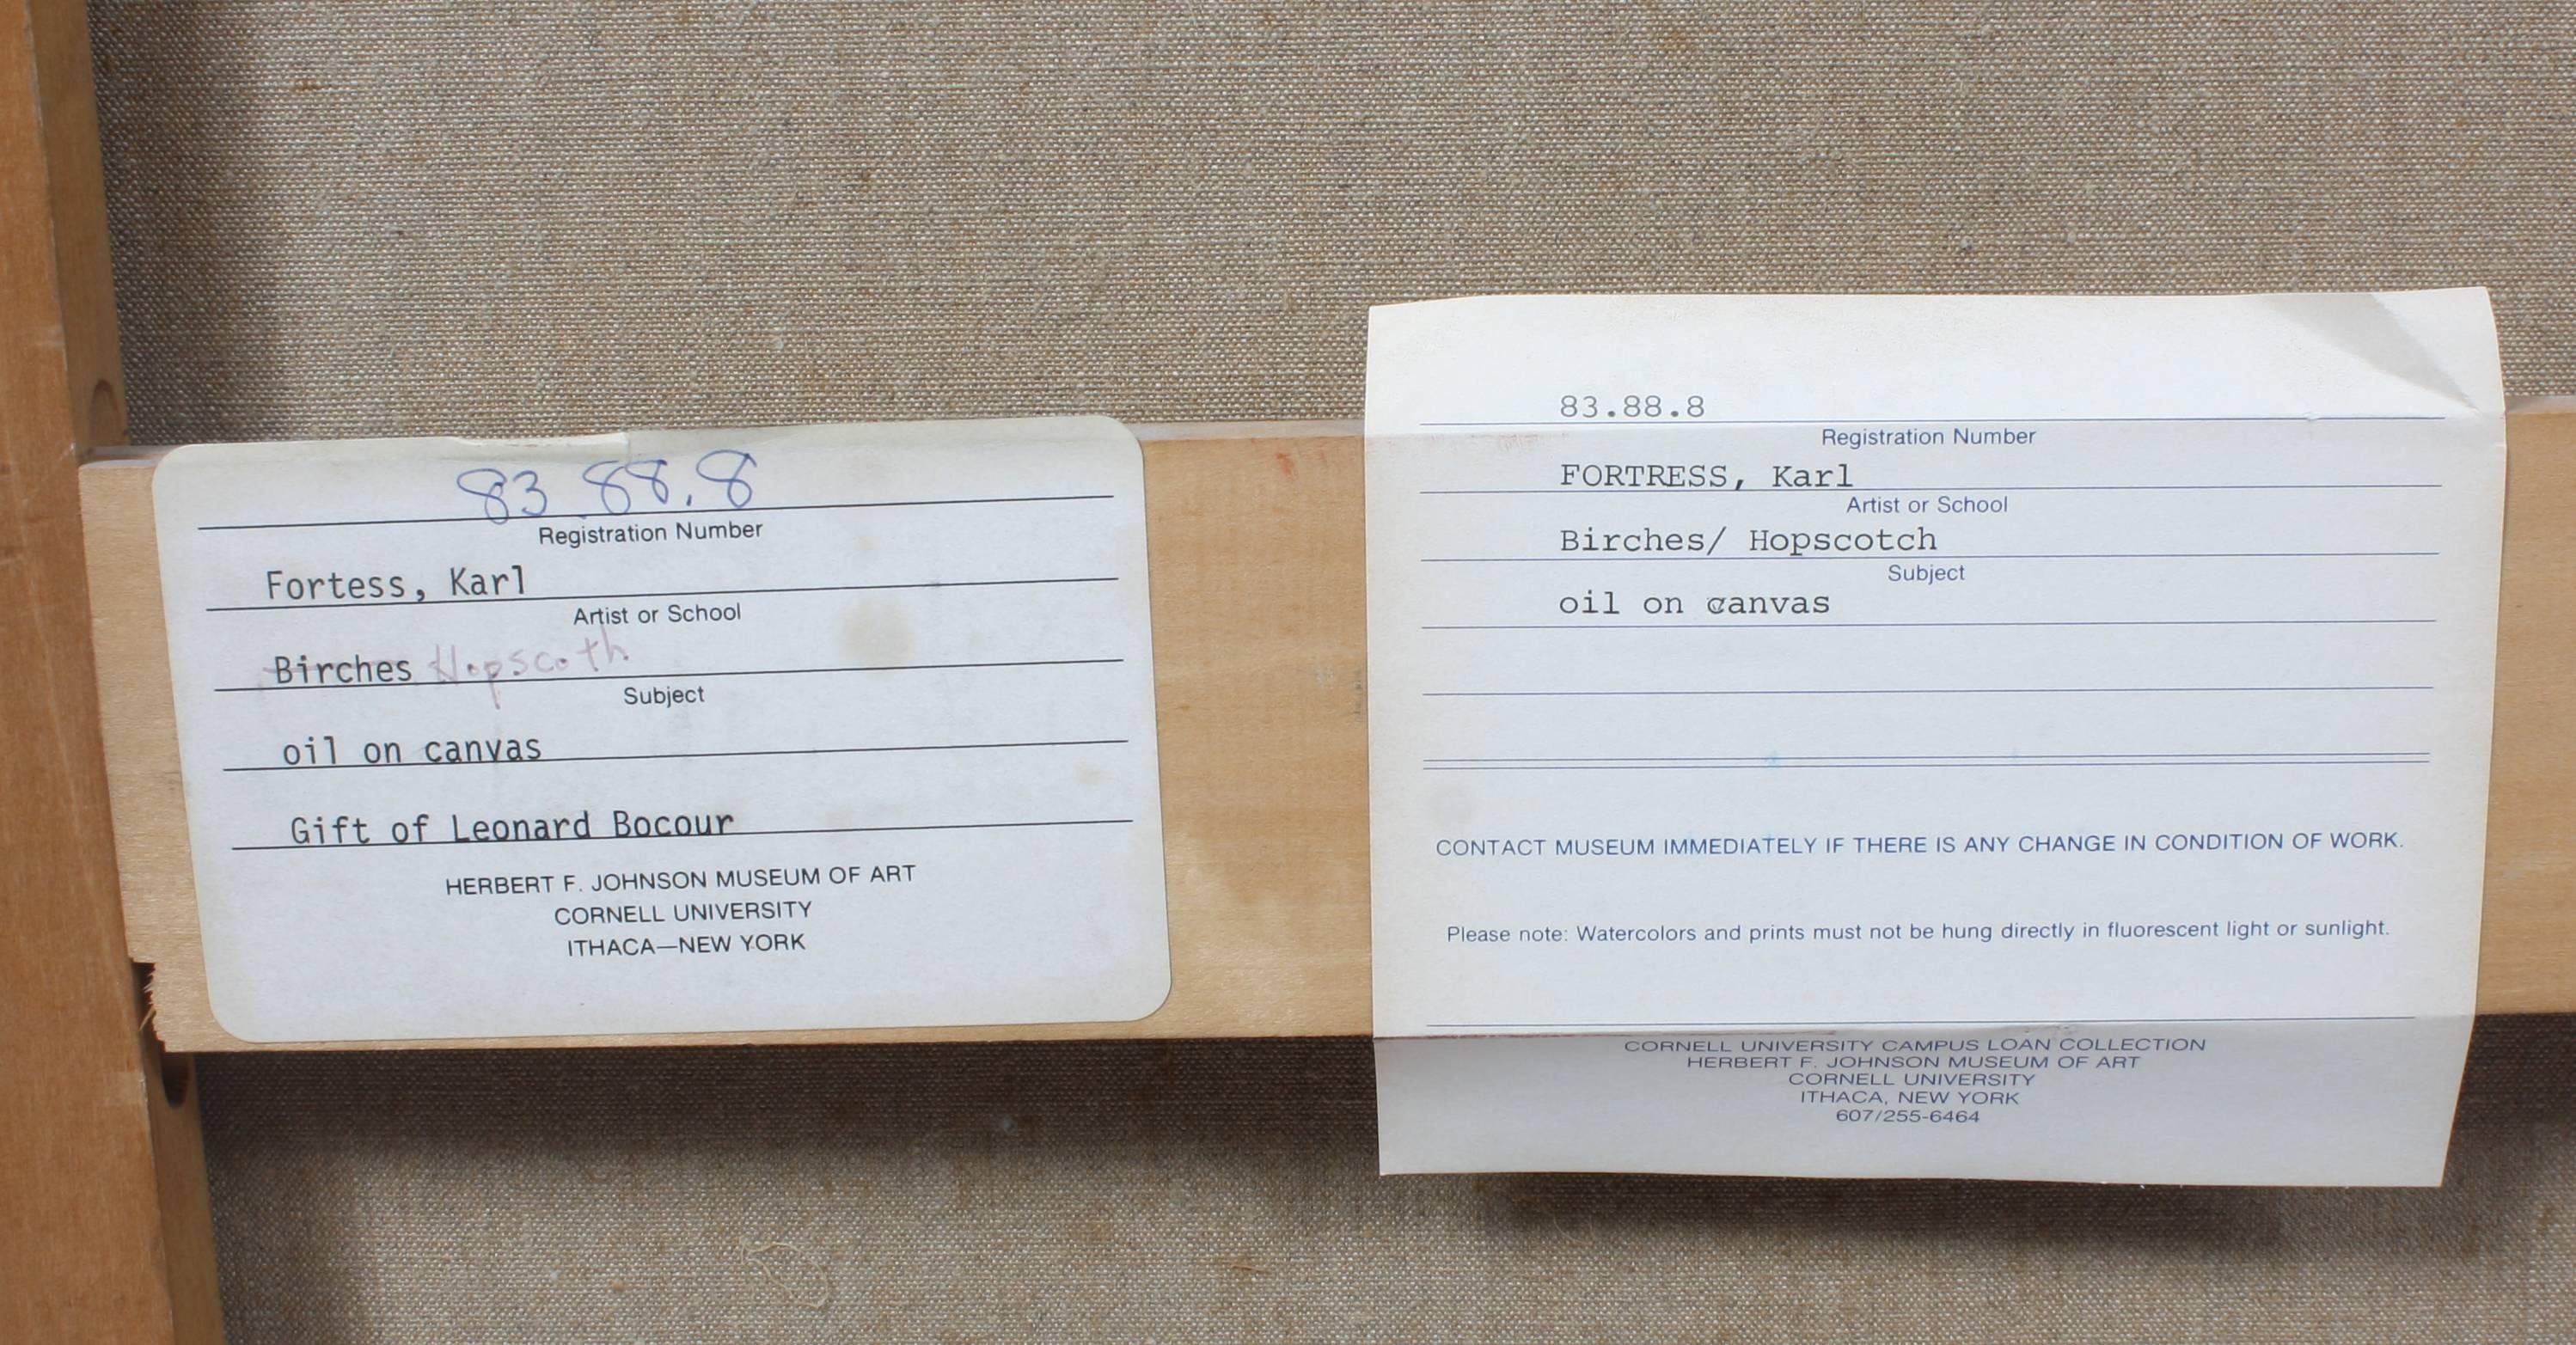 83.88.8
Registration Number
Fortess, Karl
Artist or School
Birches Hopscoth
Subject
oil on canvas
Gift of Leonard Bocour
HERBERT F. JOHNSON MUSEUM OF ART
CORNELL UNIVERSITY
ITHACA—NEW YORK
83.88.8
Registration Number
FORTRESS, Karl
Artist or School
Birches/ Hopscotch
Subject
oil on canvas
CONTACT MUSEUM IMMEDIATELY IF THERE IS ANY CHANGE IN CONDITION OF WORK.
Please note: Watercolors and prints must not be hung directly in fluorescent light or sunlight.
CORNELL UNIVERSITY CAMPUS LOAN COLLECTION
HERBERT F. JOHNSON MUSEUM OF ART
CORNELL UNIVERSITY
ITHACA, NEW YORK
607/255-6464